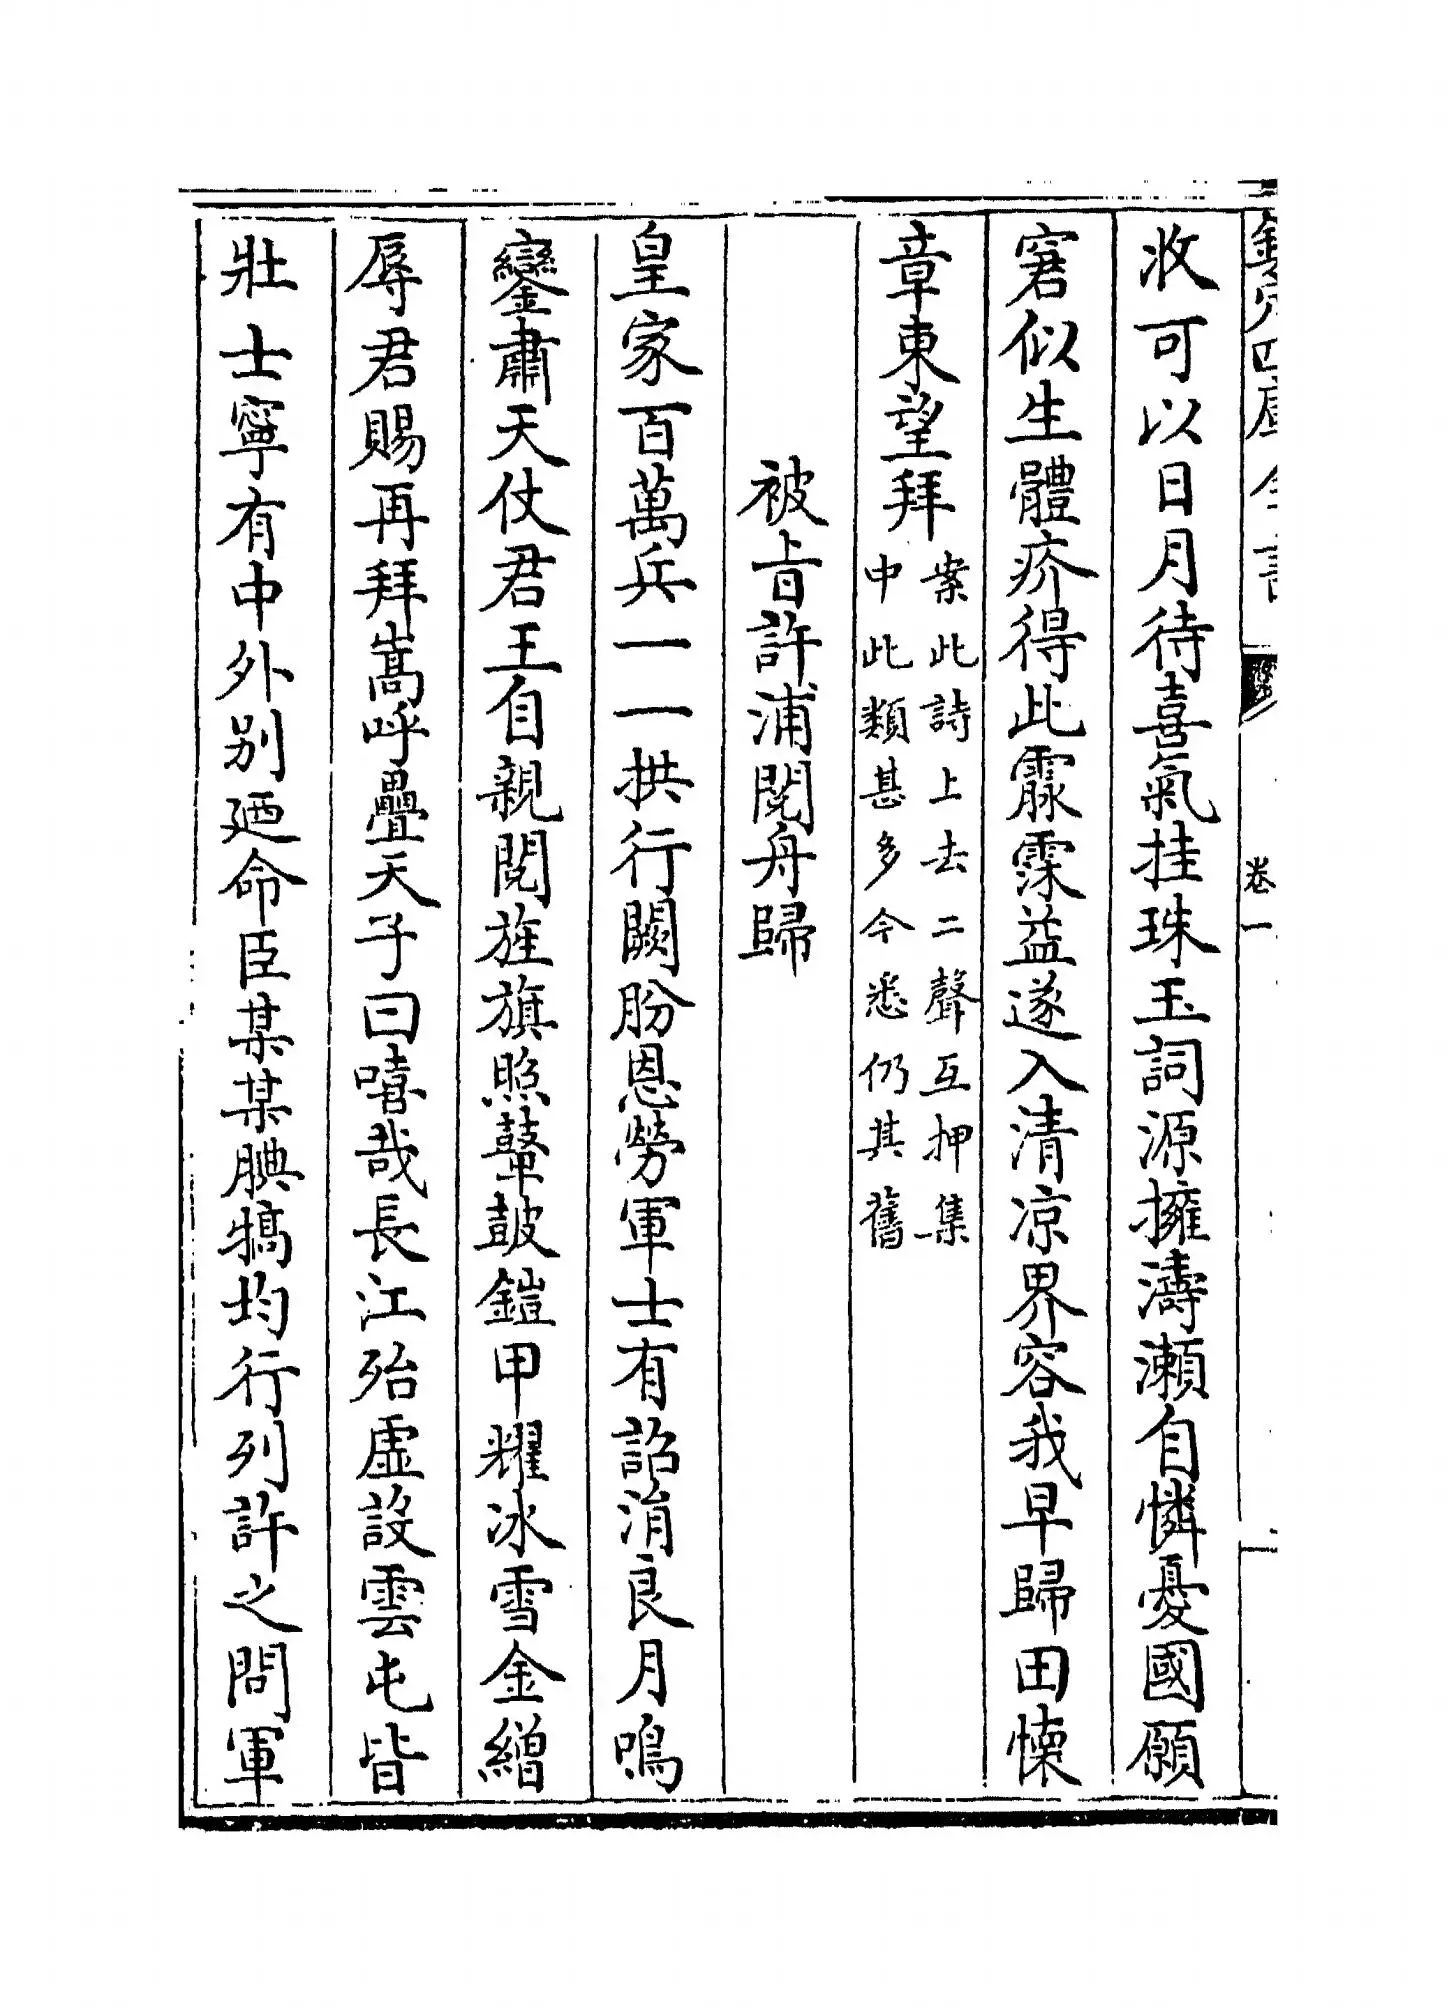 欽定四庫全書
卷一
收可以日月待喜氣挂珠玉詞源擁濤瀨自憐憂國願
窘似生體疥得此霢霂益遂入清凉界容我早歸田懷
章東望拜
案此詩上去二聲互押集
中此類甚多今悉仍其舊
被㫖許浦閲舟歸
皇家百萬兵一一拱行闕肦恩勞軍士有詔涓良月鳴
鑾肅天仗君王自親閲旌旗照鼙皷鎧甲耀冰雪金繒
辱君賜再拜嵩呼疊天子曰嘻哉長江殆虛設雲屯皆
壯士寧有中外别廼命臣某某腆犒均行列許之問軍